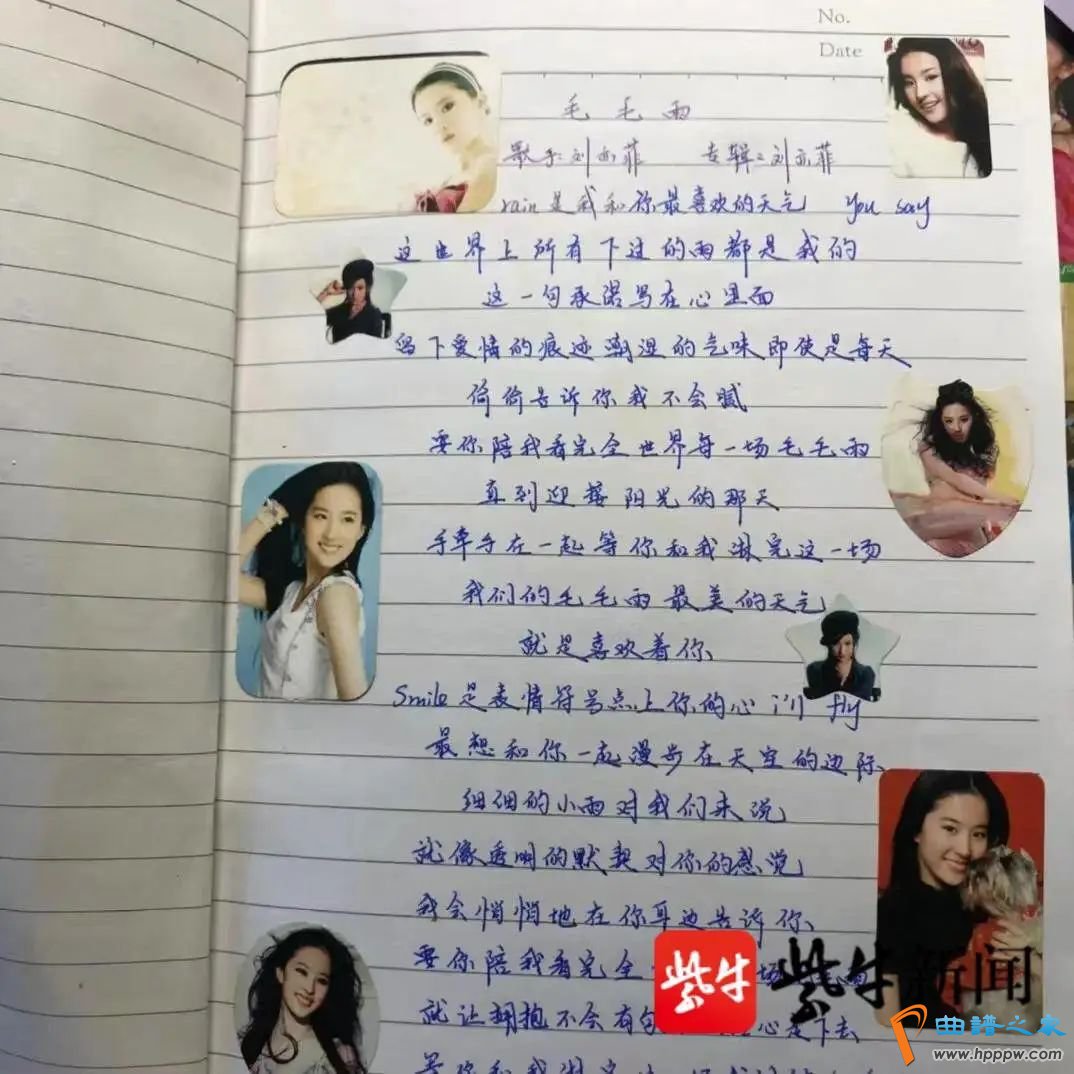 No.
Date
毛毛雨
歌手:刘亦菲 专辑:刘亦菲
rain是我和你最喜欢的天气 you say
这世界上所有下过的雨都是我的
这一句承诺写在心里面
留下爱情的痕迹潮湿的气味即使是每天
偷偷告诉你我不会腻
要你陪我看完全世界每一场毛毛雨
直到迎接阳光的那天
手牵手在一起等你和我淋完这一场
我们的毛毛雨最美的天气
就是喜欢着你
Smile是表情符号点上你的心 i'll fly
最想和你一起漫步在天空的边际
细细的小雨对我们来说
就像透明的默契对你的感觉
我会悄悄地在你耳边告诉你
要你陪我看完全
就让拥抱不会有句
要你和我淋完
紫牛
紫牛新闻
曲谱之家
www.hpppw.com